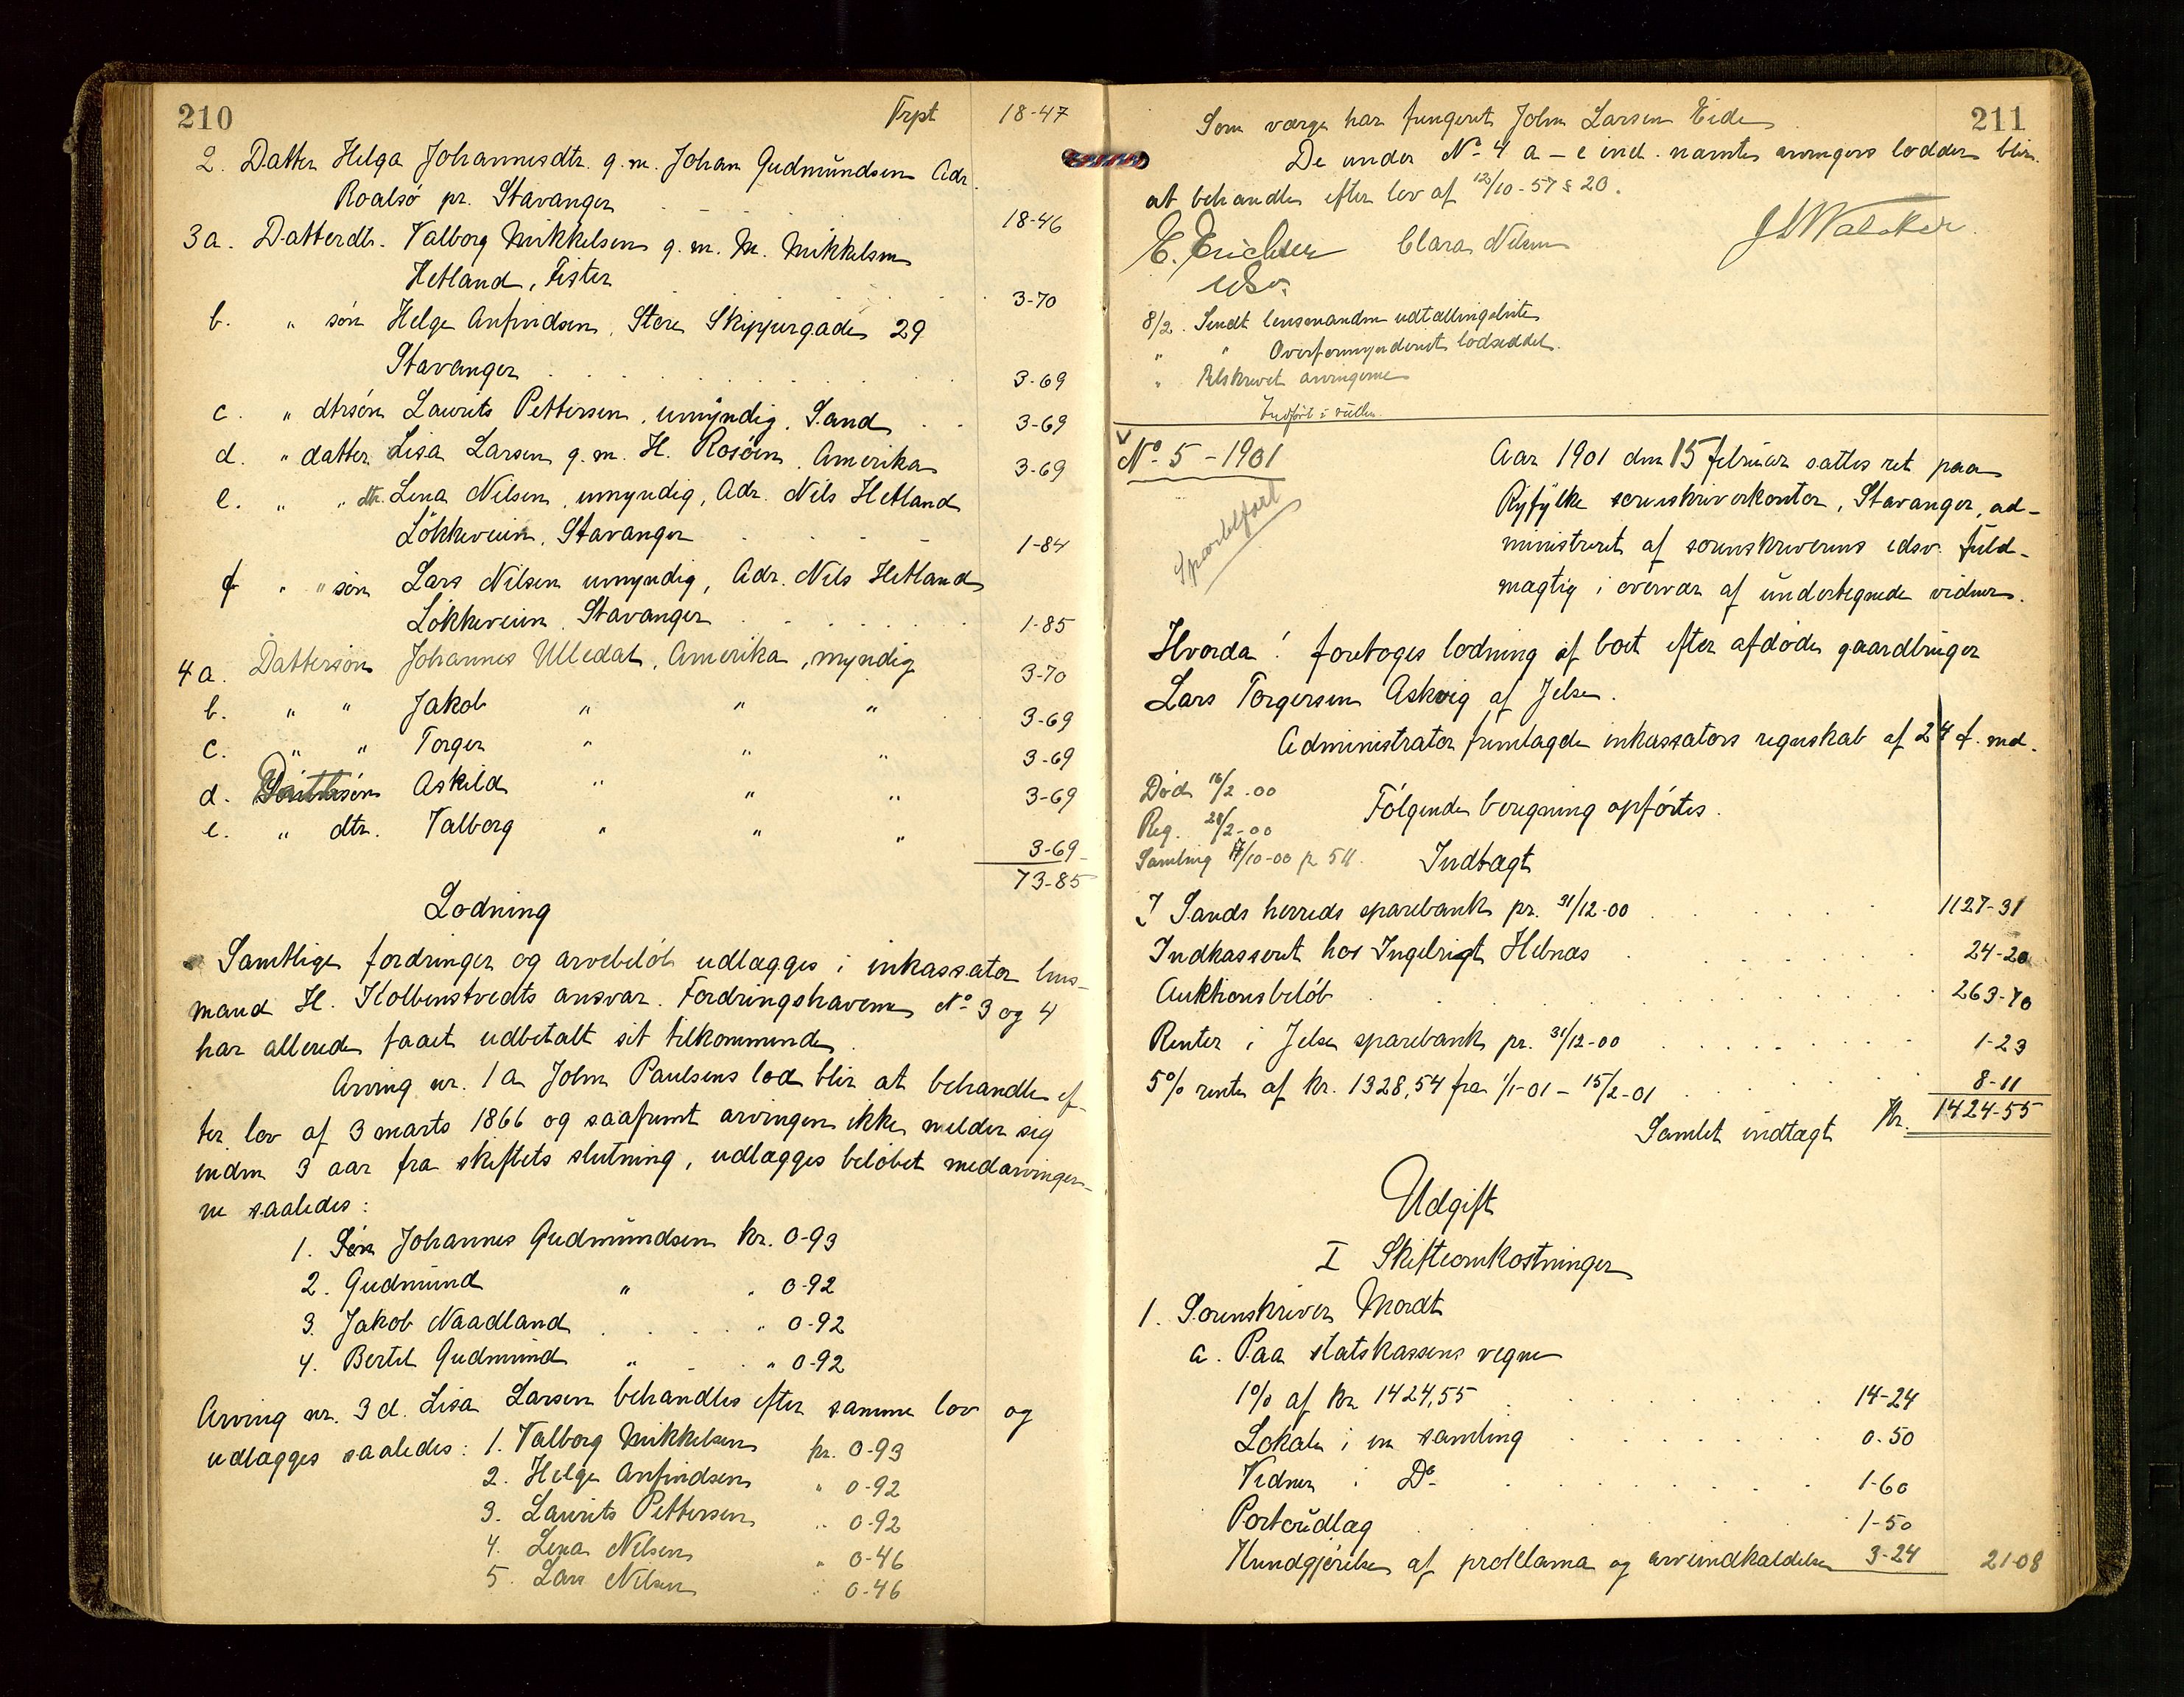 210
Trpt 18-47
2. Datter Helga Johannesdtr. g. m. Johan Gudmundsen Adr.
Roalsö pr. Stavanger 18-46
3a. Datterdtr. Valborg Mikkelsen g. m. M. Mikkelsen
Hetland, Fister 3-70
b. " sön Helge Anfindsen, Store Skippergade 29
Stavanger 3-69
c. " dtrsön Laurits Pettersen, umyndig, Sand 3-69
d. " datter Lisa Larsen g. m. H. Rosöen, Amerika 3-69
e. " " dtr. Lena Nilsen, umyndig, Adr. Nils Hetland
Lökkeveien, Stavanger 1-84
f " " sön Lars Nilsen umyndig, Adr. Nils Hetland
Lökkeveien, Stavanger 1-85
4a. Dattersön Johannes Ulledal, Amerika, myndig 3-70
b. " " Jakob " " " 3-69
c. " " Torger " " " 3-69
d. Dattersön Askild " " " 3-69
e. " dtr. Valborg " " " 3-69
73-85
Lodning
Samtlige fordringer og arvebelöb udlægges i inkassator lens-
mand H. Kolbenstvedts ansvar. Fordringshaverne No 3 og 4
har allerede faaet udbetalt sit tilkommende.
Arving nr. 1a John Paulsens lod blir at behandle ef-
ter lov af 3 marts 1866 og saafremt arvingen ikke melder sig
inden 3 aar fra skiftets slutning, udlægges belöbet medarvinger-
ne saaledes:
1. Sön Johannes Gudmundsen kr. 0-93
2. Gudmund " " 0-92
3. Jakob Naadland " 0-92
4. Bertel Gudmund " " 0-92
Arving nr. 3d. Lisa Larsen behandles efter samme lov og
udlægges saaledes: 1. Valborg Mikkelsen kr. 0-93
2. Helge Anfindsen " 0-92
3. Laurits Pettersen " 0-92
4. Lena Nilsen " 0-46
5. Lars Nilsen " 0-46
211
Som værge har fungeret John Larsen Eide
De under No 4 a - e incl. nævnte arvingers lodder blir
at behandle efter lov af 12/10-57 § 20.
E. Erichsen Clara Nilsen
8/2. Sendt lensmanden udtællingsliste
" " Overformynderiet lodseddel.
" Tilskrevet arvingerne
No 5 - 1901
Aar 1901 den 15 februar sattes ret paa
Ryfylke sorenskriverkontor, Stavanger, ad-
ministreret af sorenskriverens edsv. fuld-
mægtig i overvær af undertegnede vidner.
Hvorda! foretoges lodning af boet efter afdöde gaardbruger
Lars Torgersen Askvig af Jelse.
Administrator fremlagde inkassators regnskab af 24 f. md.
Död 16/2.00
Reg. 28/2-00
Samling 17/10-00 p 511.
Fölgende beregning opförtes.
Indtægt
I Sands herreds sparebank pr. 31/12-00 1127-31
Indkasseret hos Ingebrigt Hebnes 24-20
Auktionsbelöb 263-70
Renter i Jelse sparebank pr. 31/12-00 1-23
5% rente af kr. 1328,54 fra 1/1-01 - 15/2-01 8-11
Samlet indtægt Kr. 1424-55
Udgift
I Skifteomkostninger
1. Sorenskriver Mordt
a. Paa statskassens vegne
1% af kr 1424,55 14-24
Lokale i en samling 0.50
Vidner i Do 1-60
Portoudlæg 1-50
Kundgjörelse af proklama og arveindkaldelse 3-24 21-08